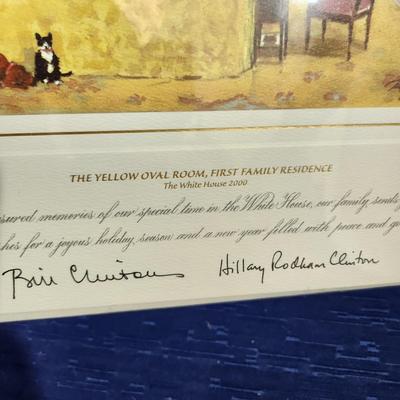 THE YELLOW OVAL ROOM, FIRST FAMILY RESIDENCE
The White House 2000
sured memories of our special time in the White House, our family sends y
hes for a joyous holiday season and a new year filled with peace and go
Bill Clinton
Hillary Rodham Clinton